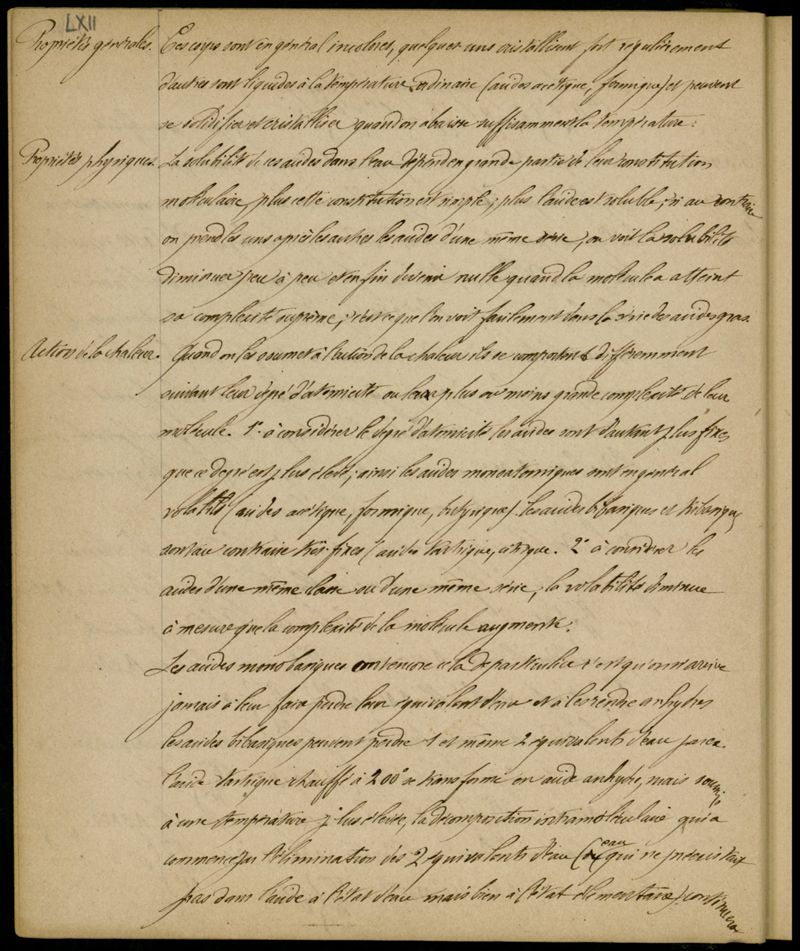 LXII
Propriétés générales.
Ces corps sont en général incolores, quelques uns cristallisent fort régulièrement
d'autres sont liquides à la température ordinaire (acides acétique, formique) et peuvent
se solidifier et cristalliser quand on abaisse suffisamment la température.
Propriétés physiques.
La solubilité de ces acides dans l'eau dépend en grande partie de leur constitution
moléculaire, plus cette constitution est simple, plus l'acide est soluble, si au contraire
on prend les uns après les autres les acides d'une même série, on voit la solubilité
diminuer peu à peu et enfin devenir nulle quand la molécule a atteint
sa complexité suprême, c'est ce que l'on voit facilement dans la série des acides gras.
Action de la chaleur.
Quand on les soumet à l'action de la chaleur ils se comportent différemment
suivant leur degré d'atomicité ou la plus ou moins grande complexité de leur
molécule. 1° à considérer le degré d'atomicité les acides sont d'autant plus fixes
que ce degré est plus élevé; ainsi les acides monoatomiques sont en général
volatils (acides acétique, formique, butyrique). les acides bibasiques et tribasiques
sont au contraire très-fixes (acides tartrique, citrique. 2° à considérer les
acides d'une même classe ou d'une même série, la volatilité diminue
à mesure que la complexité de la molécule augmente.
Les acides monobasiques ont encore cela de particulier c'est qu'on n'arrive
jamais à leur faire perdre leur équivalent d'eau et à les rendre anhydres
les acides bibasiques peuvent perdre 1 et même 2 équivalents d'eau par ex.
l'acide tartrique chauffé à 200° se transforme en acide anhydre, mais soumis
à une température plus élevée, la décomposition intramoléculaire qui a
commencé par l'élimination des 2 équivalents d'eau (eau qui ne préexistait
pas dans l'acide à l'état d'eau mais bien à l'état élémentaire) continuera